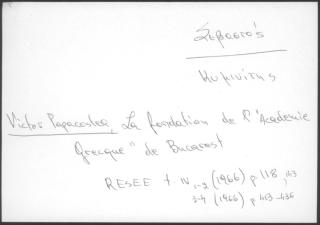 Σεβαστός
Κυμινίτης
Victor Papacostea, La fondation de l'"Academie
Grecque" de Bucarest
RESEE t. IV 1-2 (1966) p 118, 163
3-4 (1966) p 413-436